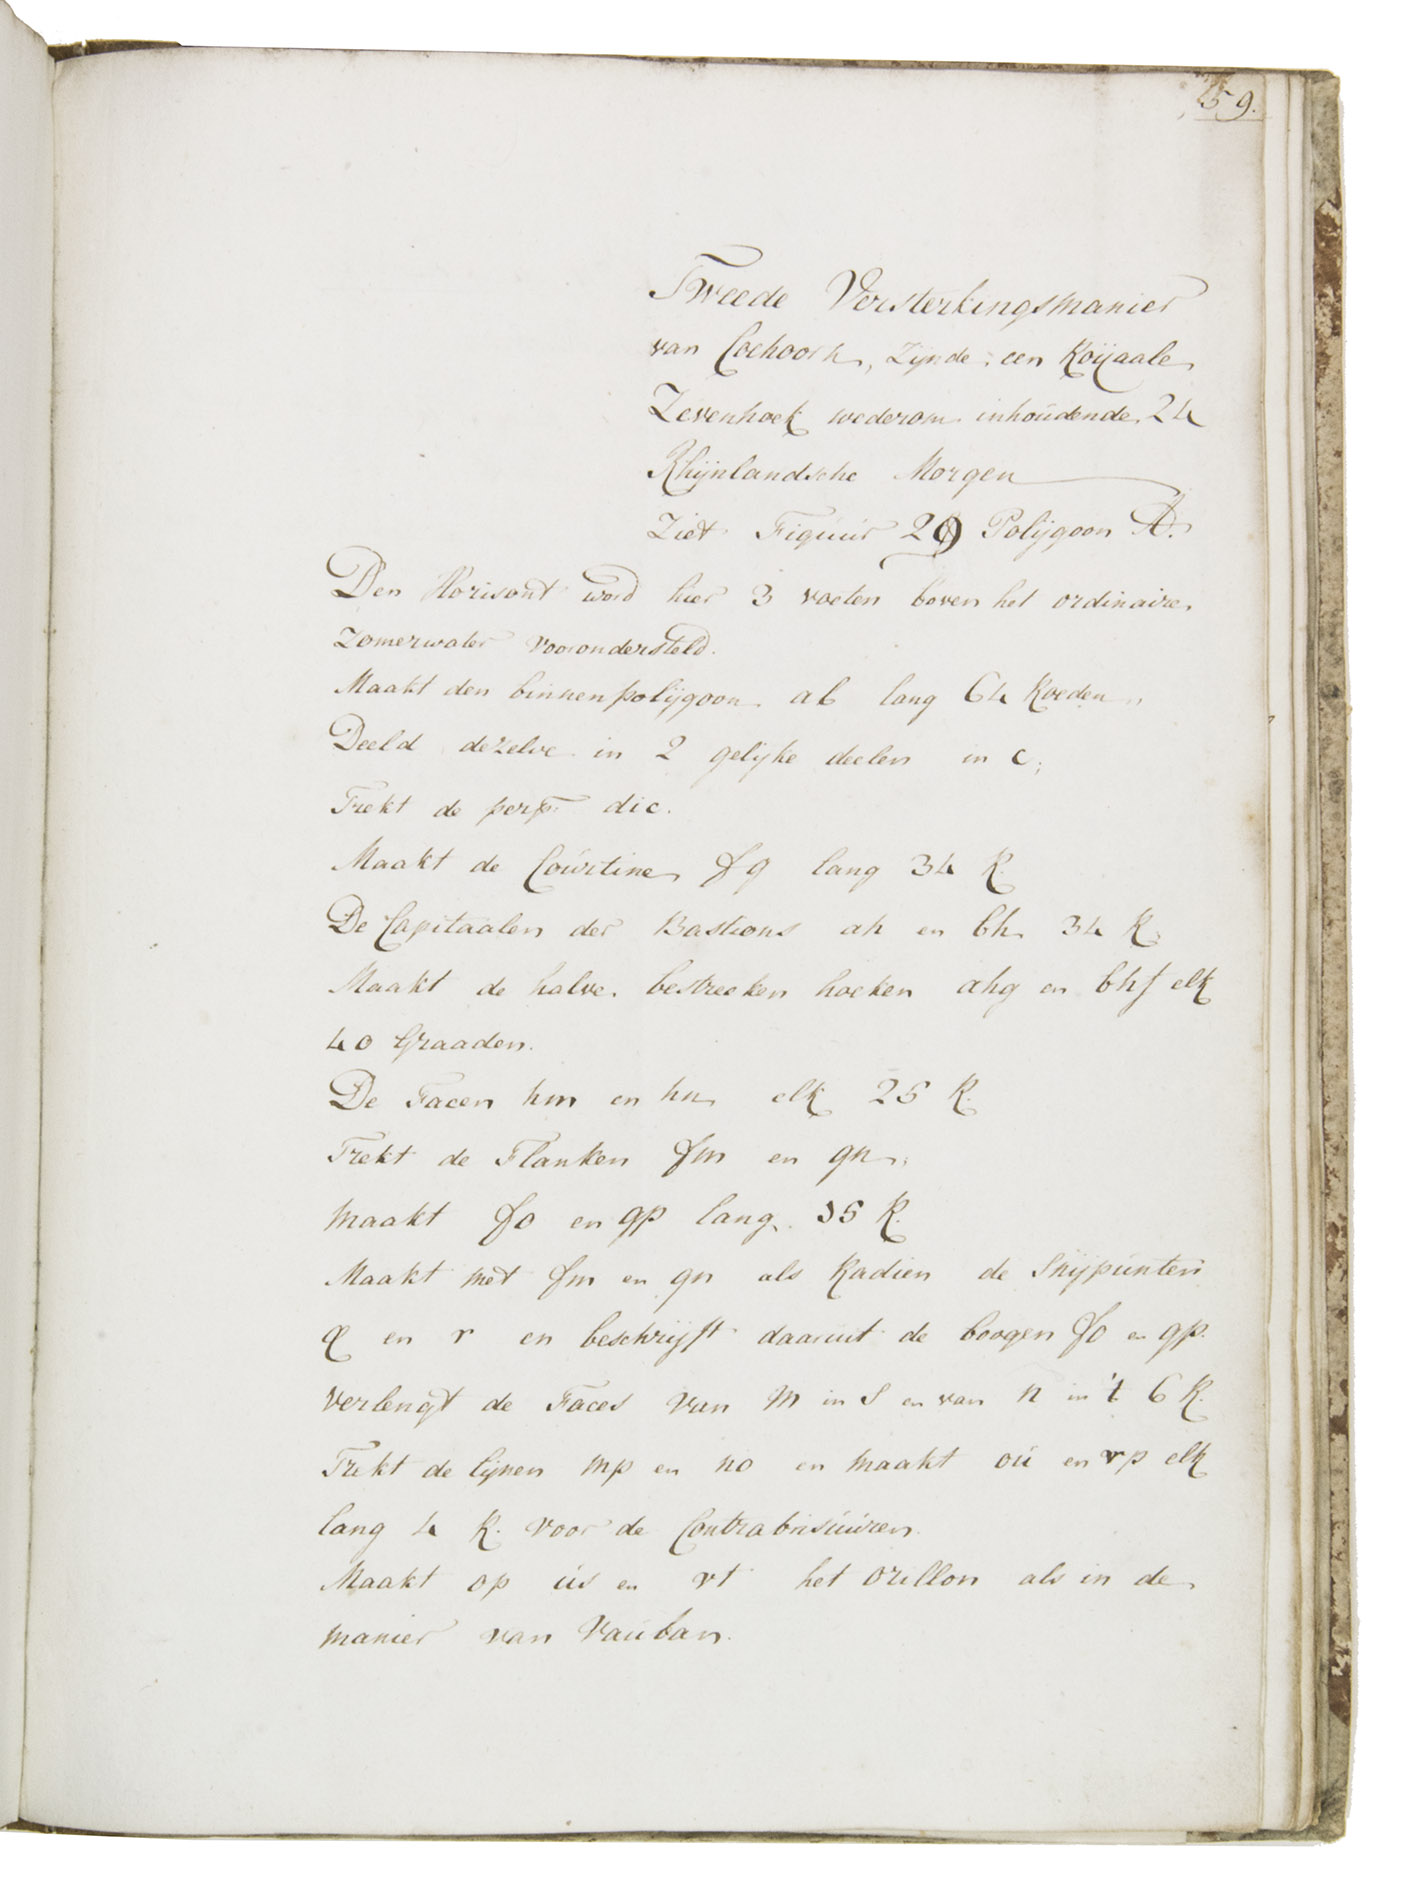 59.
Tweede Versterkingsmanier
van Coehoorn, Zijnde een Roijaale
Zevenhoek wederom inhoudende 24
Rhijnlandsche Morgen
Ziet Figuur 29 Polijgoon A.
Den Horisont word hier 3 voeten boven het ordinaire
Zomerwater voorondersteld.
Maakt den binnenpolijgoon ab lang 64 Roeden,
Deeld dezelve in 2 gelijke deelen in c;
Trekt de perp. dic.
Maakt de Courtine fg lang 34 R.
De Capitaalen der Bastions ah en bh 34 R.
Maakt de halve bestreeken hoeken ahg en bhf elk
40 Graaden.
De Facen hm en hn elk 25 R.
Trekt de Flanken fm en gn;
Maakt fo en gp lang 35 R.
Maakt met fm en gn als Radien de Snijpunten
q en r en beschrijft daaruit de boogen fo en gp.
Verlengt de Faces van m in s en van n in t 6 R.
Trekt de lijnen mp en no en maakt ou en vp elk
lang 4 R. voor de Contrabrisuuren.
Maakt op us en vt het orillon als in de
manier van Vauban.